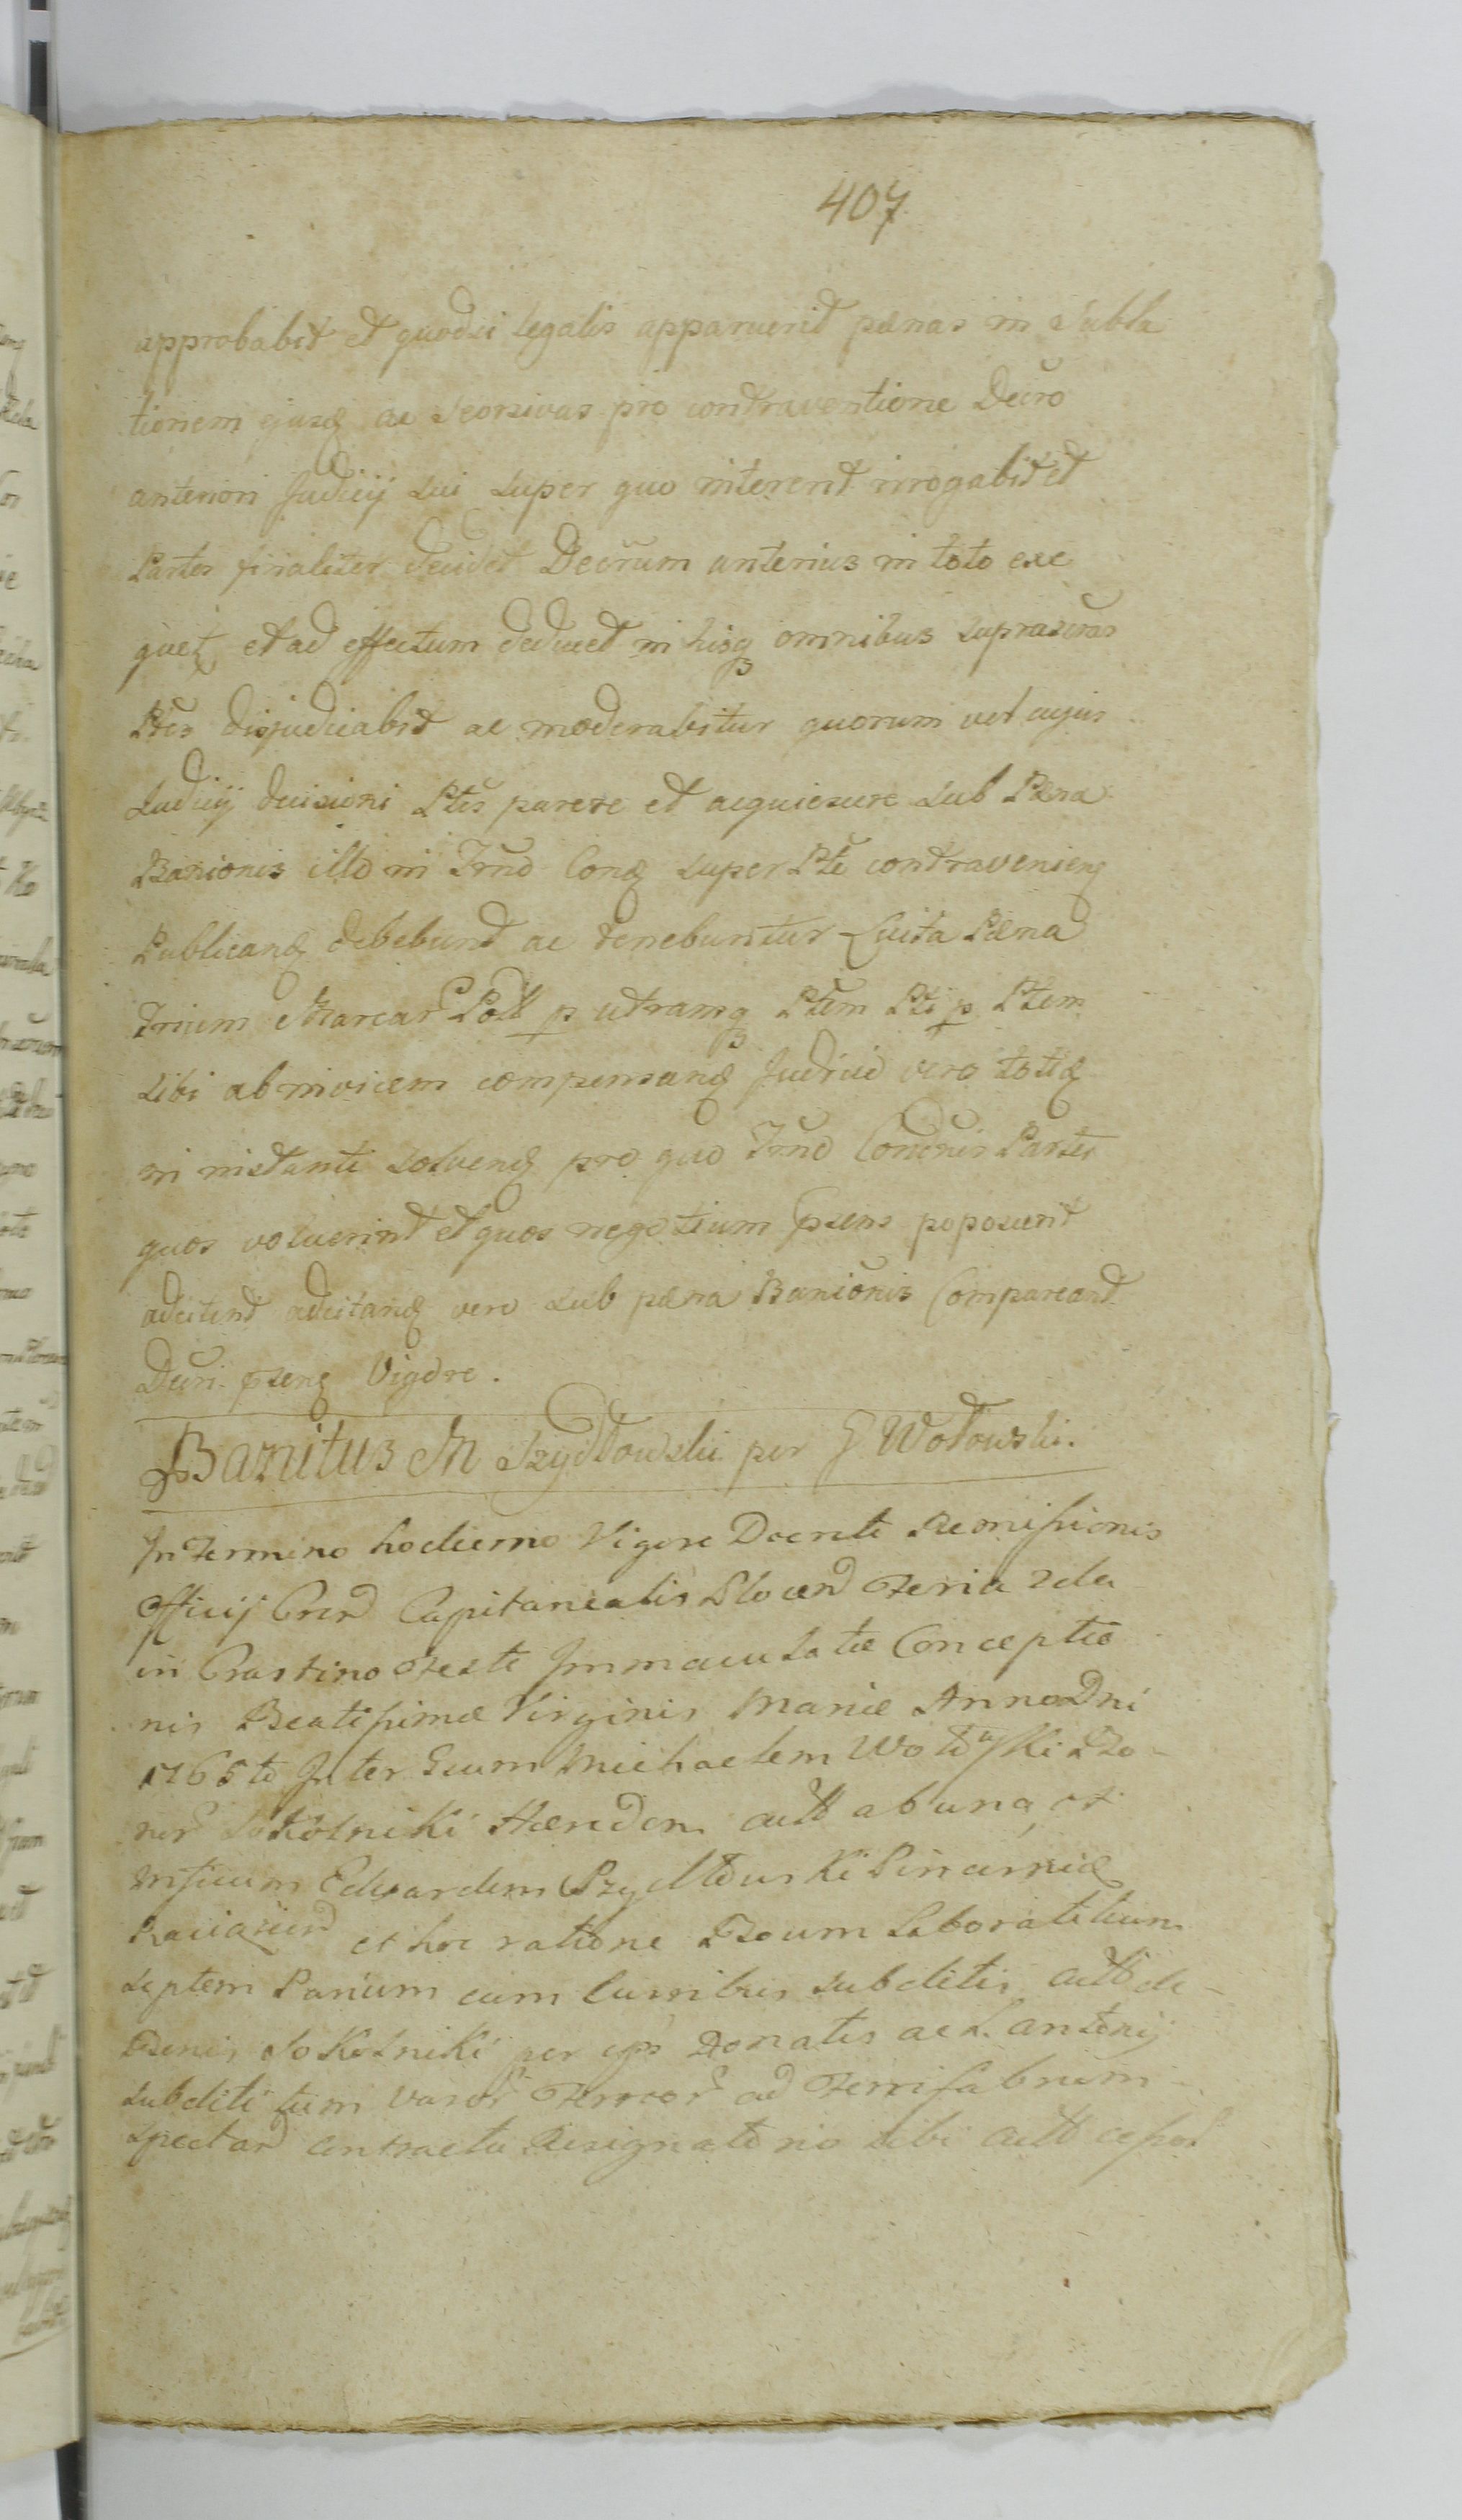 407
approbabit et quodsi legalis apparuerit pænas in Subla
tionem ejusq ac seorsivas pro contraventione Decro
anteriori Judicij sui super quo intererit irrogabit et
Partes finaliter decidet Decrum anterius in toto exe
quet et ad effectum deducet in hisq omnibus suprascras
Ptes disjudicabit ac moderabitur quorum vel cujus
Judicij decisioni Ptes parere et acquiescere sub Pæna
Banionis illo in Trno Conq super Pte contravenienq
Publicanq debebunt ac tenebuntur Luita Pæna
Trium Marcar Poll p utramq Ptem Pti p Ptem
sibi ab invicem compensanq Judicio vero totiq
in instanti solvenq pro quo Trno Partes
quos voluerint et quos negotium psens poposcerit
adcitent adcitanq vero sub pæna Banionis Compareant
Decri psenq Vigore.
Banitus M Szydłowski per G Wołowski.
In Termino hodierno Vigore Decreti Remissionis
Officij Capitanealis Plocen Feria 2da
in Crastino Festi Immaculatæ Conceptio
nis Beatissimæ Virginis Mariæ Anno Dni
1765to Inter Gsum Michaelem Wołowski Bo-
nor Sokolniki Hæredem actt ab una et
Mficum Edvardem Szydłowski Pincernid
et hoc ratione Boum Laboratitium
septem Parium cum subditis actt de
Bonis Sokolniki per eps Donatis ac L. Antonij
subditi tum vasor Ferreor ad Ferrifabrium
spectan contractu Resignatorio sibi actt